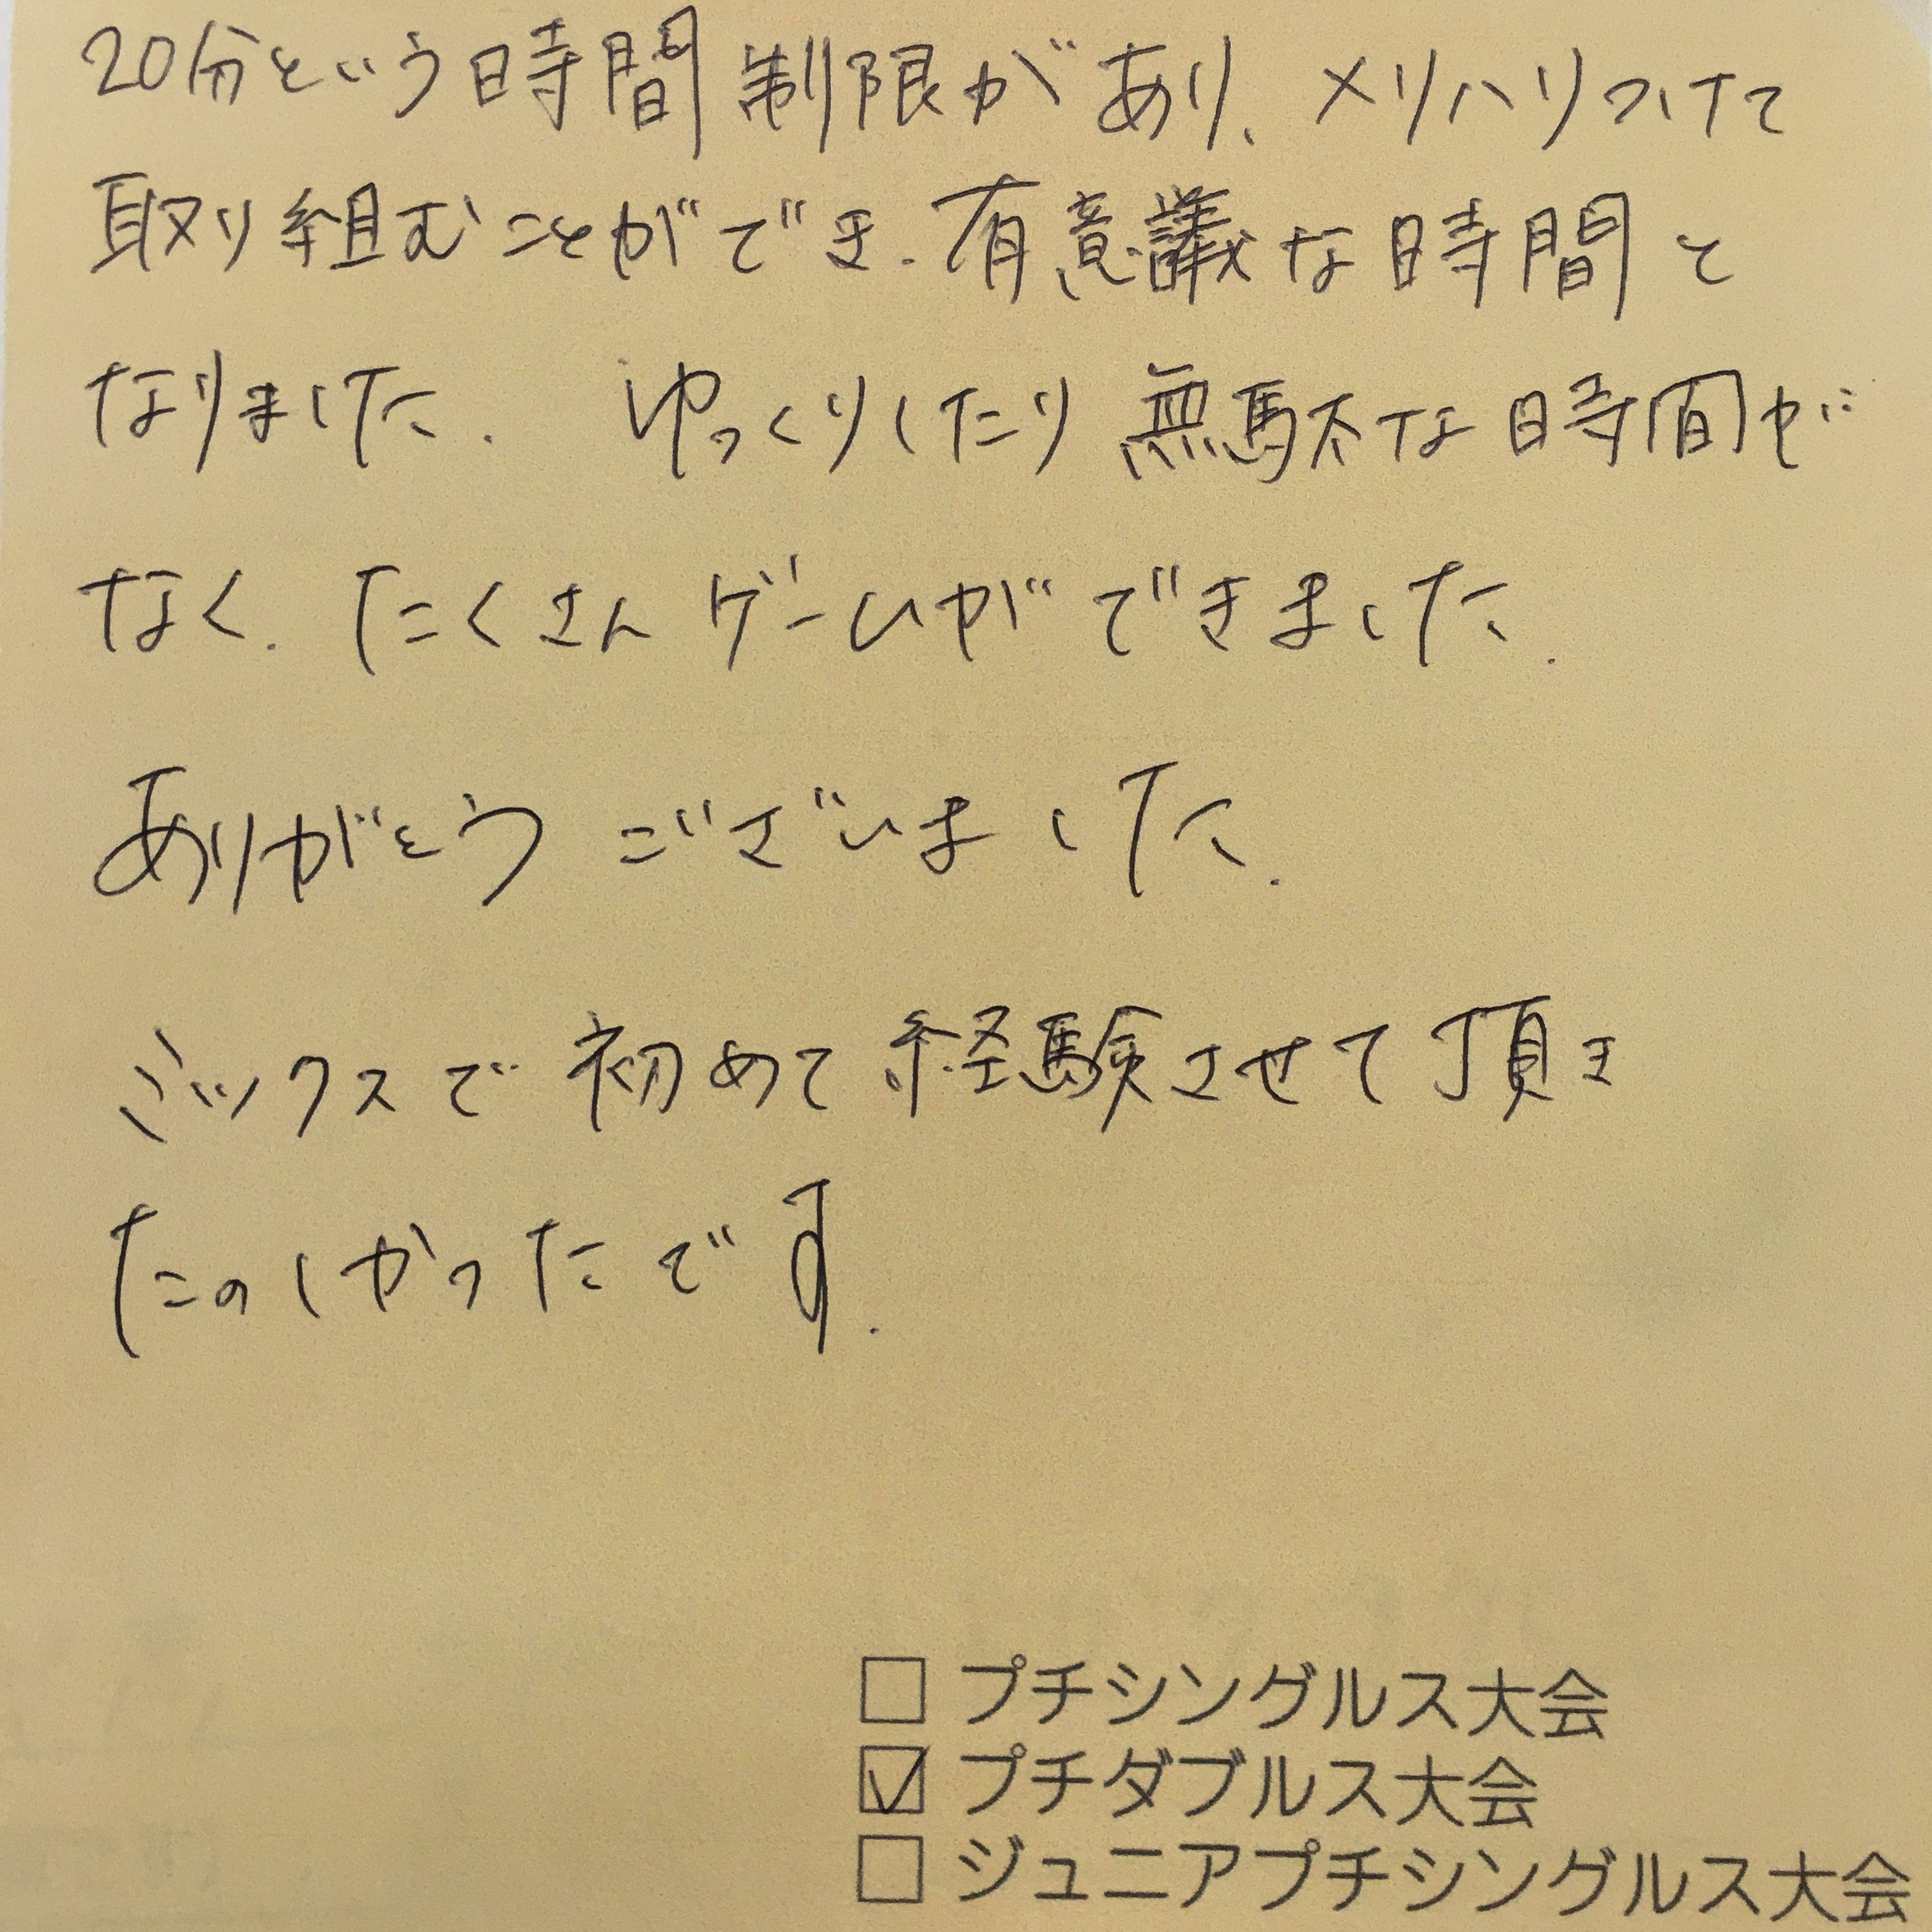 20分という時間制限があり、メリハリつけて
取り組むことができ、有意議な時間と
なりました. ゆっくりしたり無駄な時間が
なく. たくさんゲームができました.
ありがとうございました.
ミックスで初めて経験させて頂き
たのしかったです.
□ プチシングルス大会
☑ プチダブルス大会
□ ジュニアプチシングルス大会